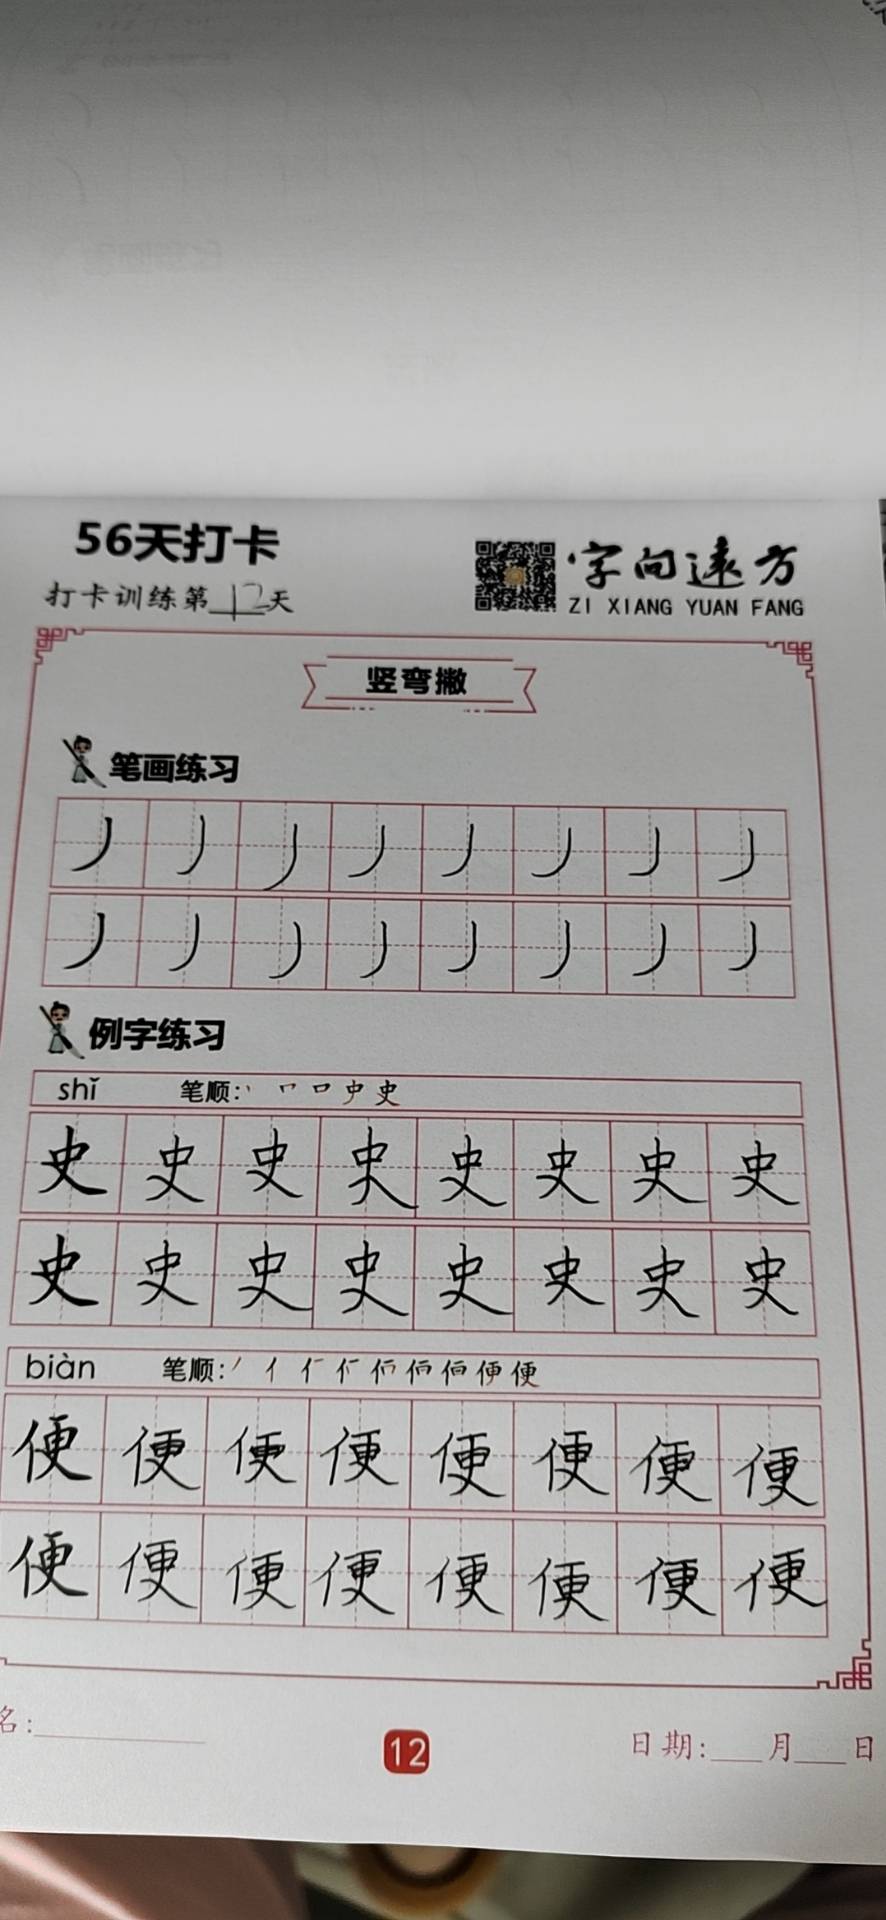 56天打卡
打卡训练第12天
字向远方
ZI XIANG YUAN FANG
竖弯撇
笔画练习
丿丿丿丿丿丿丿丿
丿丿丿丿丿丿丿丿
例字练习
shǐ 笔顺:
史史史史史史史史
史史史史史史史史
biàn 笔顺:
便便便便便便便便
便便便便便便便便
名:
12
日期: 月 日